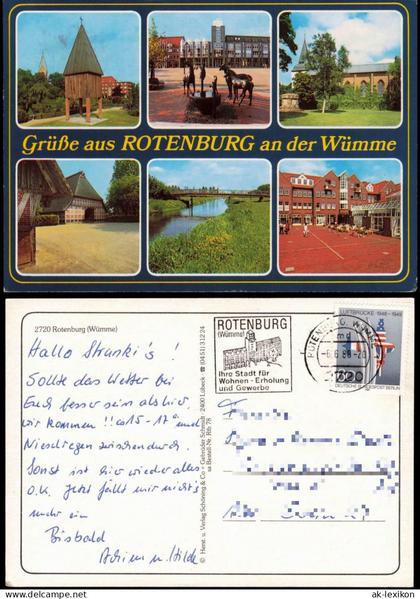 Grüße aus ROTENBURG an der Wümme
2720 Rotenburg (Wümme)
Hallo Strunki's!
Sollte das Wetter bei
Euch besser sein als hier,
wir kommen!! ca 15-17° und
Nieselregen zwischendurch.
Sonst ist hier wieder alles
o.k. Jetzt fällt mir nichts
mehr ein
Bisbald
u. Hilde
© Herst. u. Verlag Schöning & Co + Gebrüder Schmidt · 2400 Lübeck ☎ (0451) 31224
Bestell-Nr. Rtb 78
ROTENBURG
(Wümme)
Ihre Stadt für
Wohnen - Erholung
und Gewerbe
ROTENBURG, WÜMME
md
2720
LUFTBRÜCKE 1948-1949
DEUTSCHE BUNDESPOST BERLIN
ak-lexikon.com